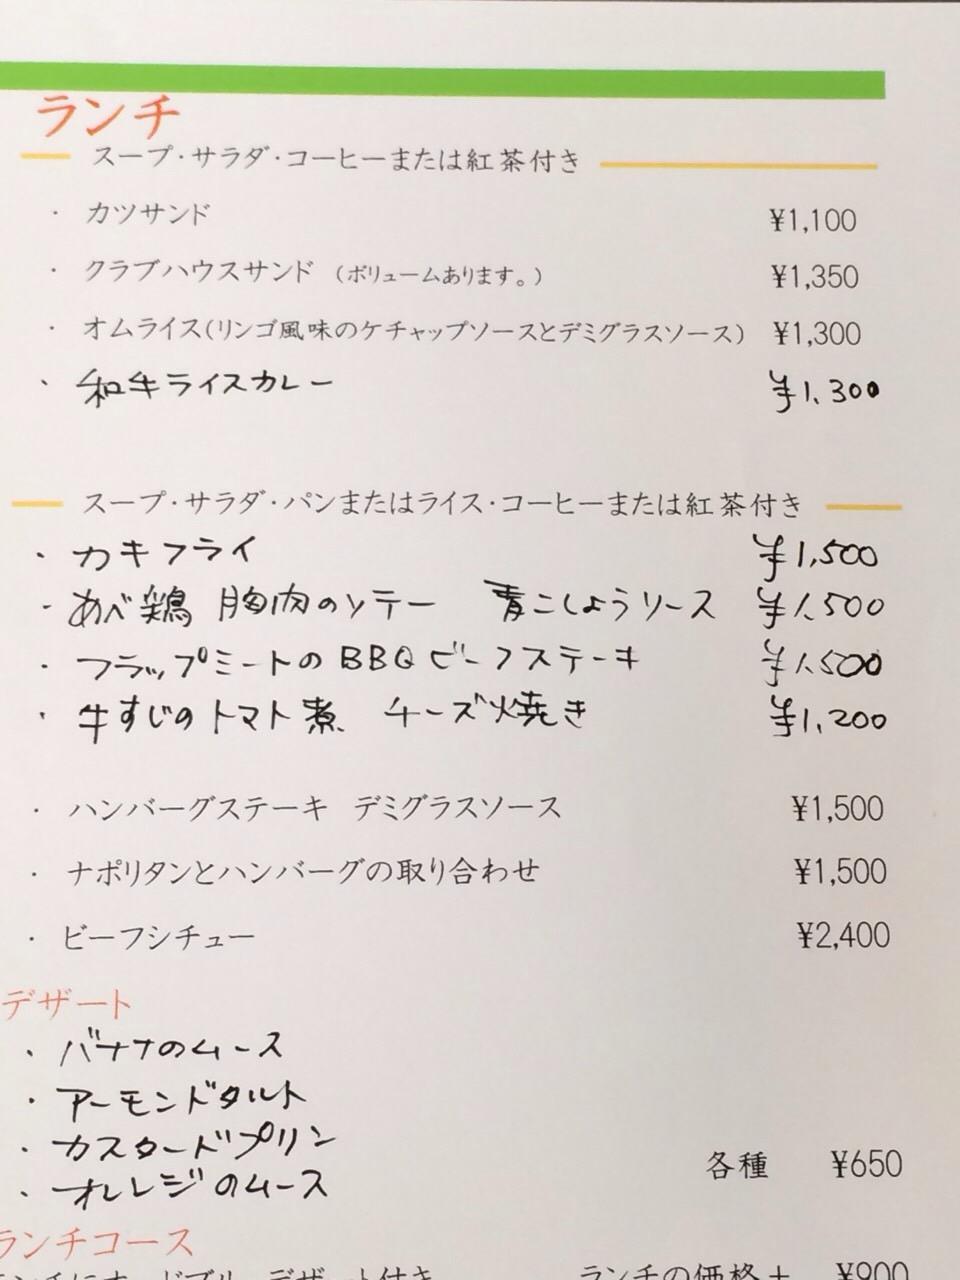 ランチ
スープ・サラダ・コーヒーまたは紅茶付き
・ カツサンド ¥1,100
・ クラブハウスサンド （ボリュームあります。） ¥1,350
・ オムライス(リンゴ風味のケチャップソースとデミグラスソース) ¥1,300
・ 和牛ライスカレー ¥1,300
スープ・サラダ・パンまたはライス・コーヒーまたは紅茶付き
・ カキフライ ¥1,500
・ あべ鶏 胸肉のソテー 青こしょうソース ¥1,500
・ フラップミートのBBQビーフステーキ ¥1,500
・ 牛すじのトマト煮 チーズ焼き ¥1,200
・ ハンバーグステーキ デミグラスソース ¥1,500
・ ナポリタンとハンバーグの取り合わせ ¥1,500
・ ビーフシチュー ¥2,400
デザート
・ バナナのムース
・ アーモンドタルト
・ カスタードプリン
・ オレンジのムース
各種 ¥650
ランチコース
ランチにオードブル、デザート付き ランチの価格＋ ¥900